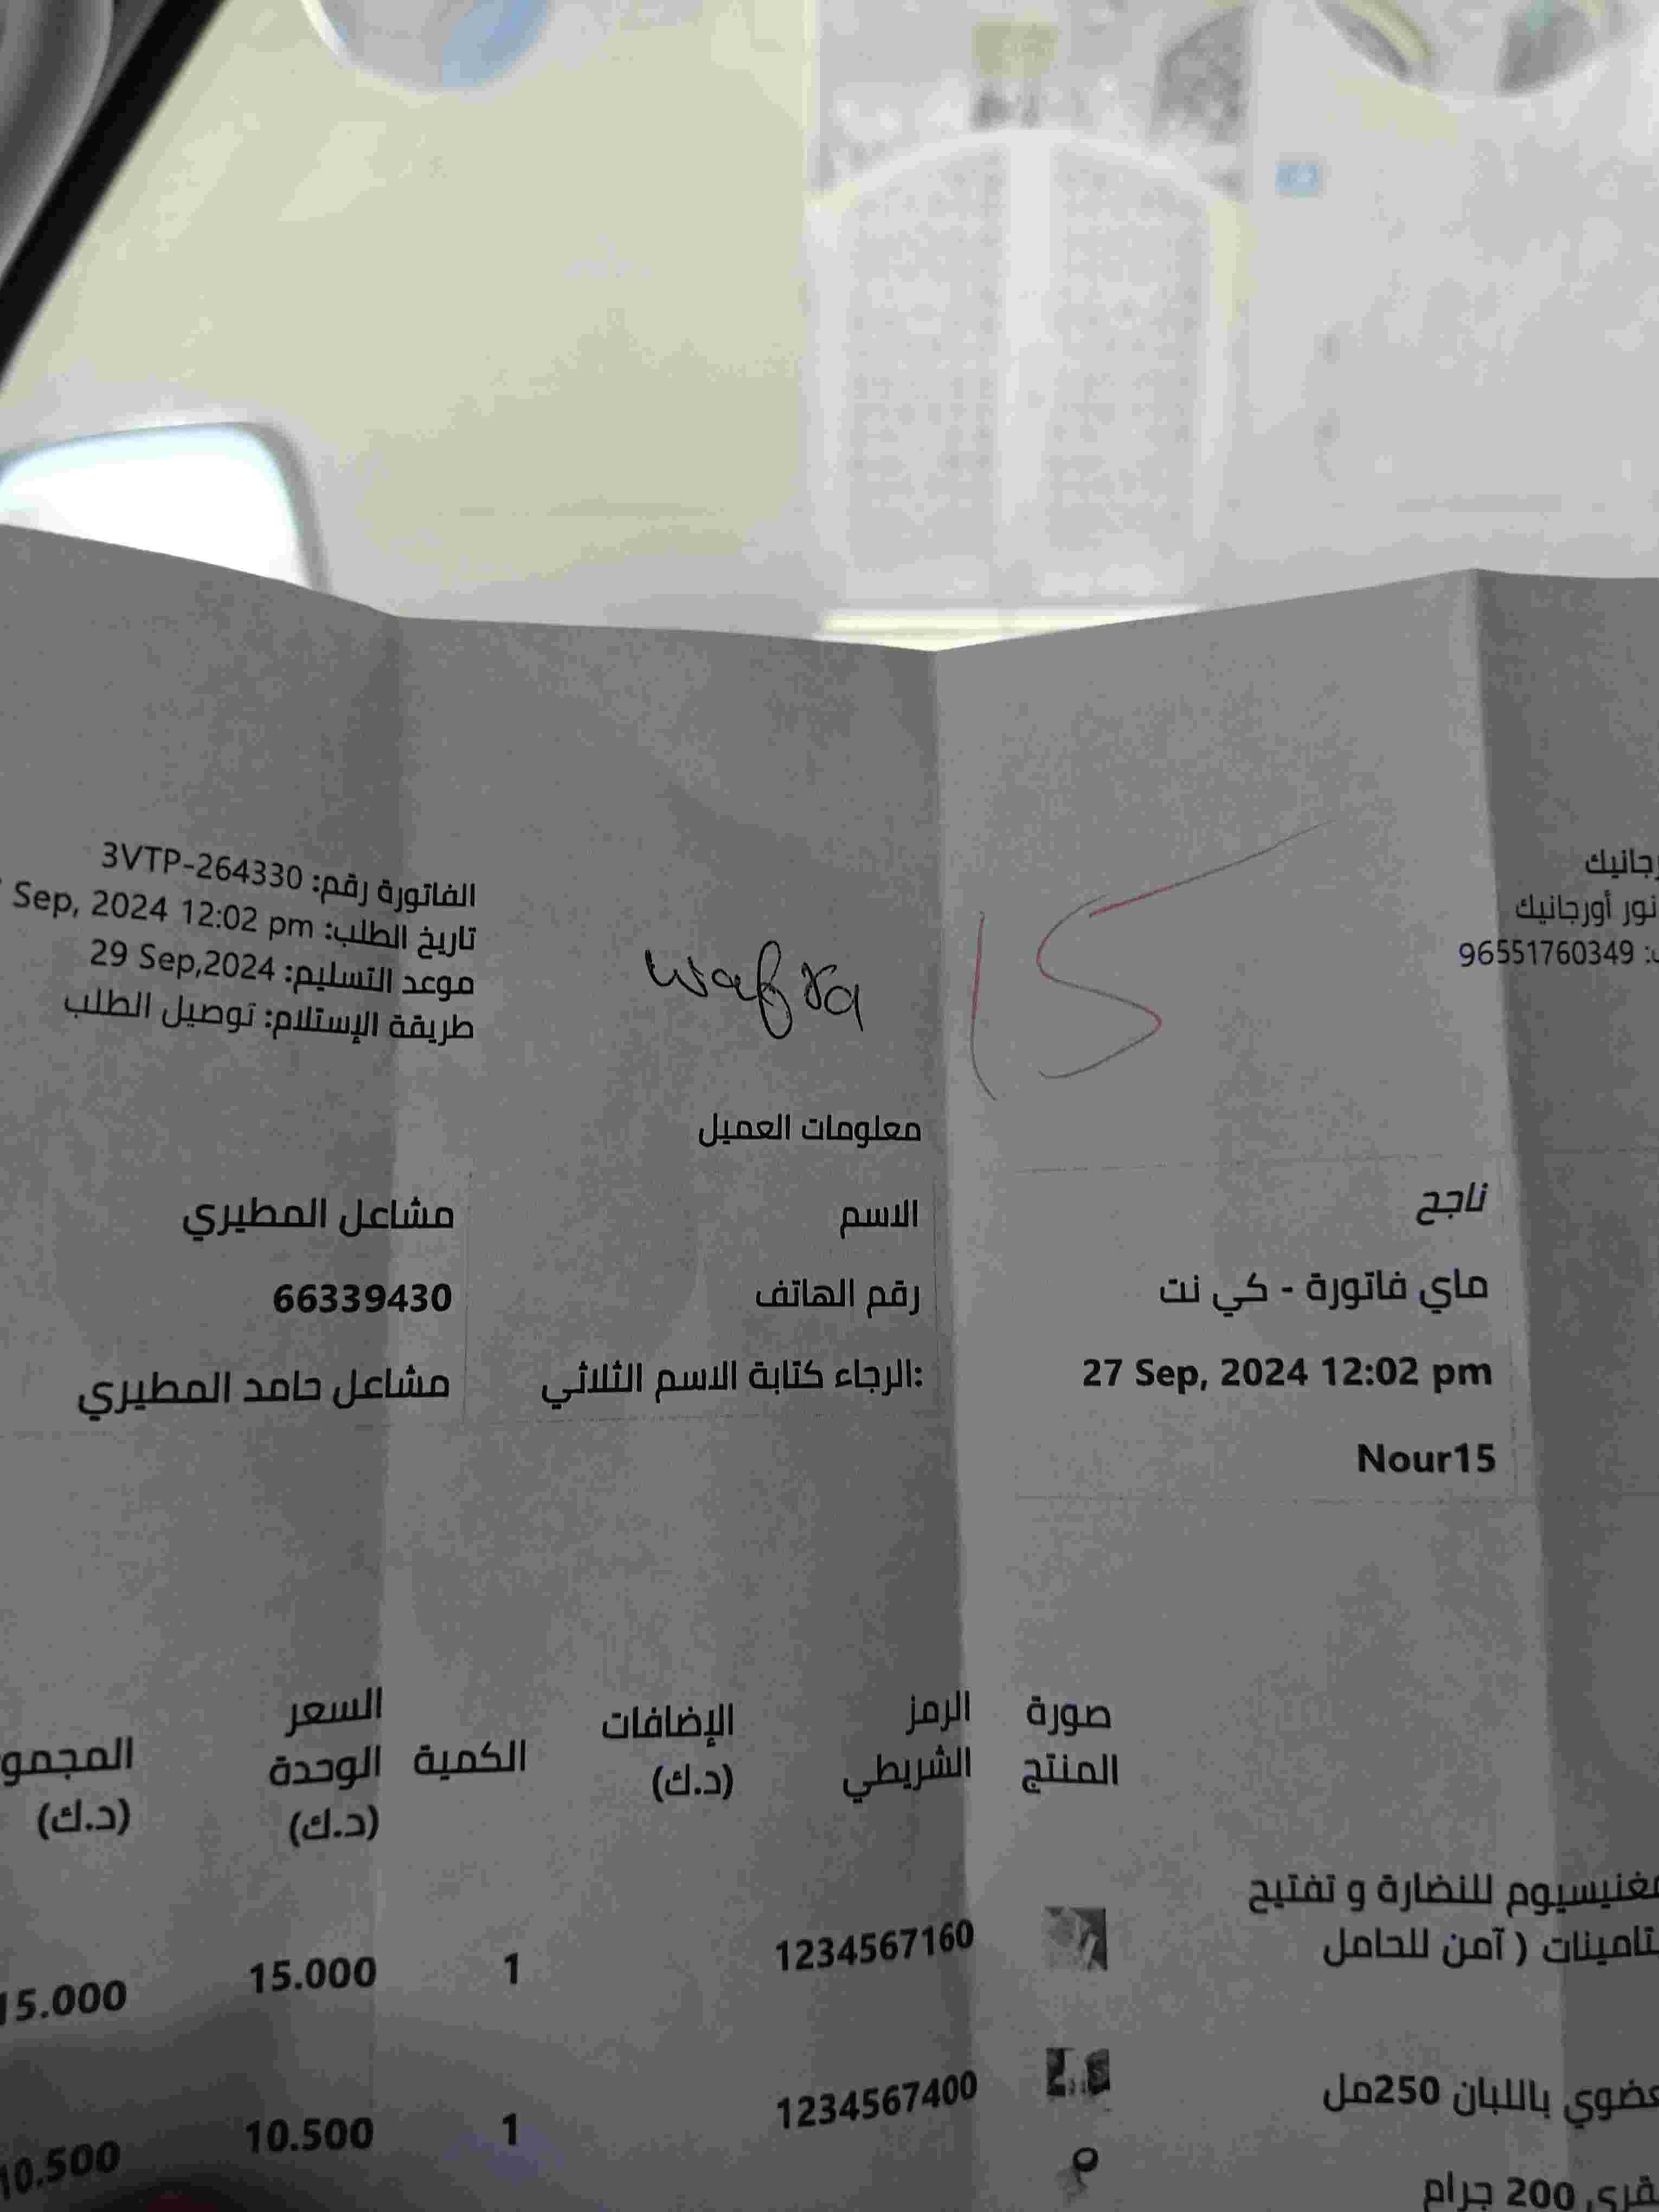 نور أورجانيك
96551760349
الفاتورة رقم: 3VTP-264330
تاريخ الطلب: Sep, 2024 12:02 pm
موعد التسليم: 29 Sep,2024
طريقة الإستلام: توصيل الطلب
15
wafra
ناجح
ماي فاتورة - كي نت
27 Sep, 2024 12:02 pm
Nour15
معلومات العميل
الاسم مشاعل المطيري
رقم الهاتف 66339430
الرجاء كتابة الاسم الثلاثي: مشاعل حامد المطيري
صورة المنتج
الرمز الشريطي
الإضافات (د.ك)
الكمية
السعر الوحدة (د.ك)
(د.ك)
للنضارة و تفتيح
( آمن للحامل
1234567160 1 15.000 15.000
باللبان 250مل
1234567400 1 10.500 10.500
200 جرام